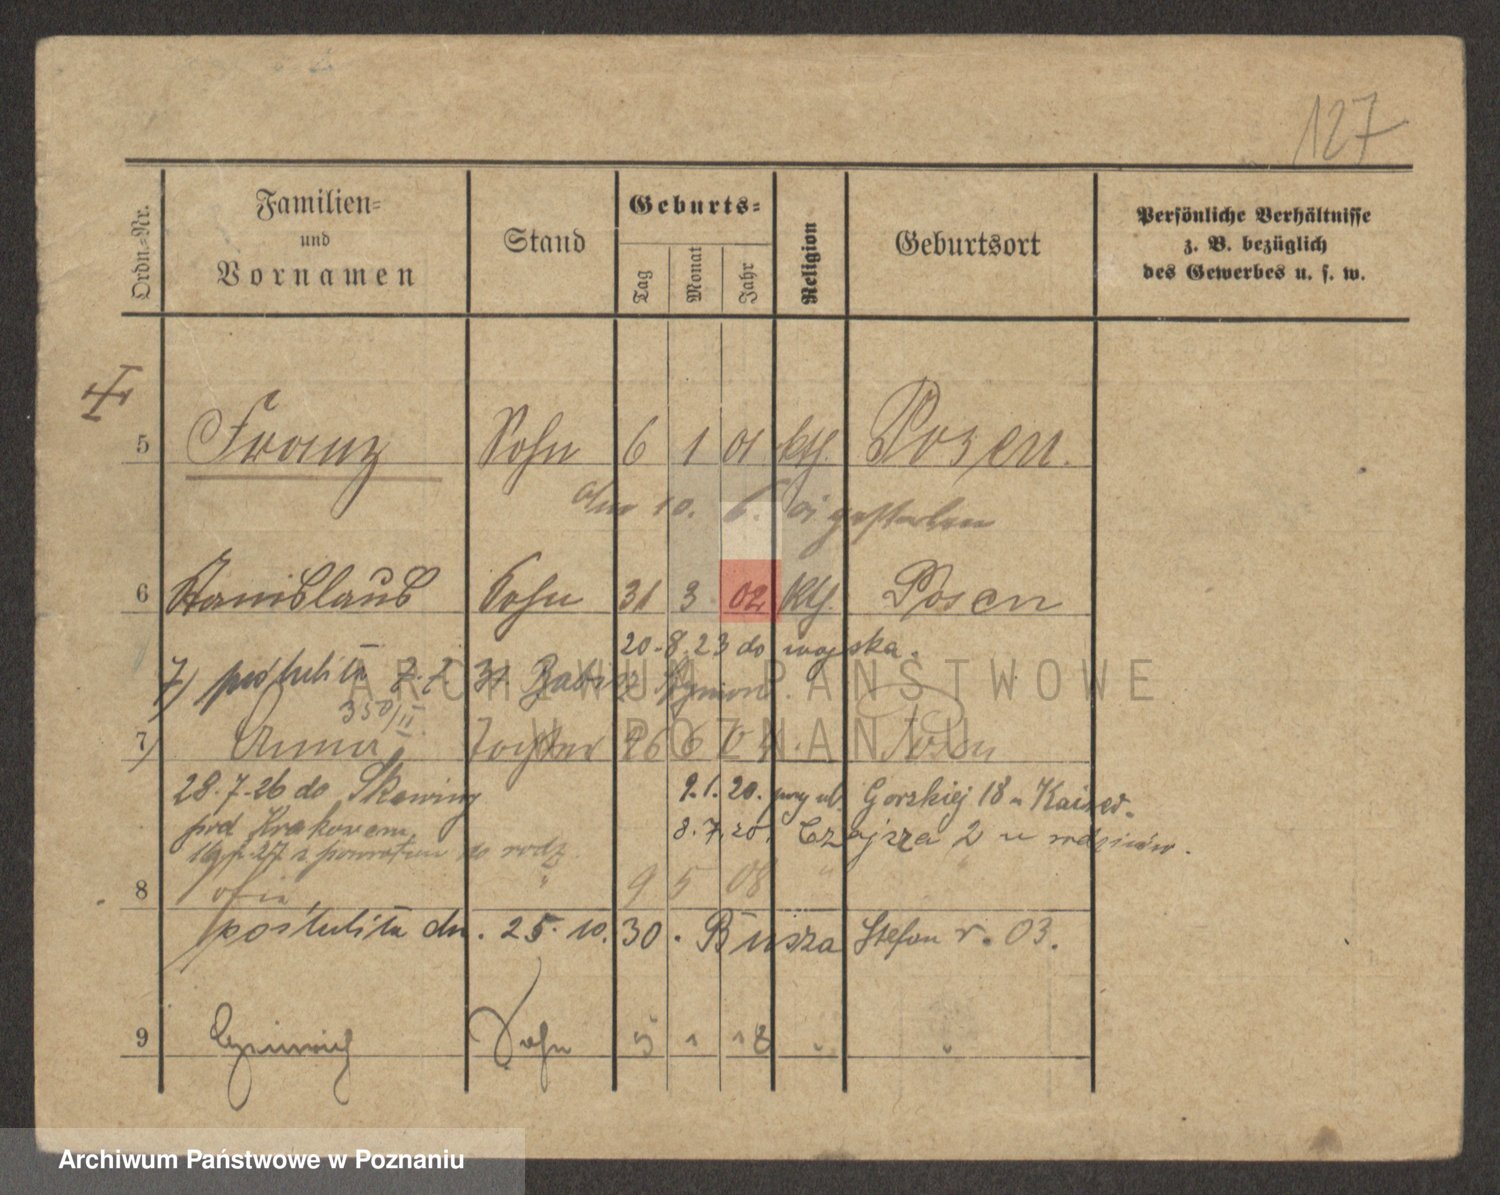 127
Ordn.-Nr.
Familien-
und
Vornamen
Stand
Geburts-
Tag
Monat
Jahr
Religion
Geburtsort
Persönliche Verhältnisse
z. B. bezüglich
des Gewerbes u. s. w.
5 Franz Sohn 6 1 01 kth. Posen.
10. 6. 01 gestorben
6 Stanislaus Sohn 31 3 02 kth. Posen
20.8.23 do wojska.
7) poślubiła 31
350/II
7) Anna Tochter 26 6 Posen
28.7.26 do
9.1.20. przy ul. Gorskiej 18 u Kaiser.
pod Krakowem
8.7.20. Czajcza 2 u rodziców.
z powrotem do rodz.
8 Zofia " 9 5 08 " "
poślubiła dn. 25.10.30. Busza Stefan r. 03.
9 Heinrich Sohn 5 1 18 " "
ARCHIWUM PAŃSTWOWE
W POZNANIU
Archiwum Państwowe w Poznaniu